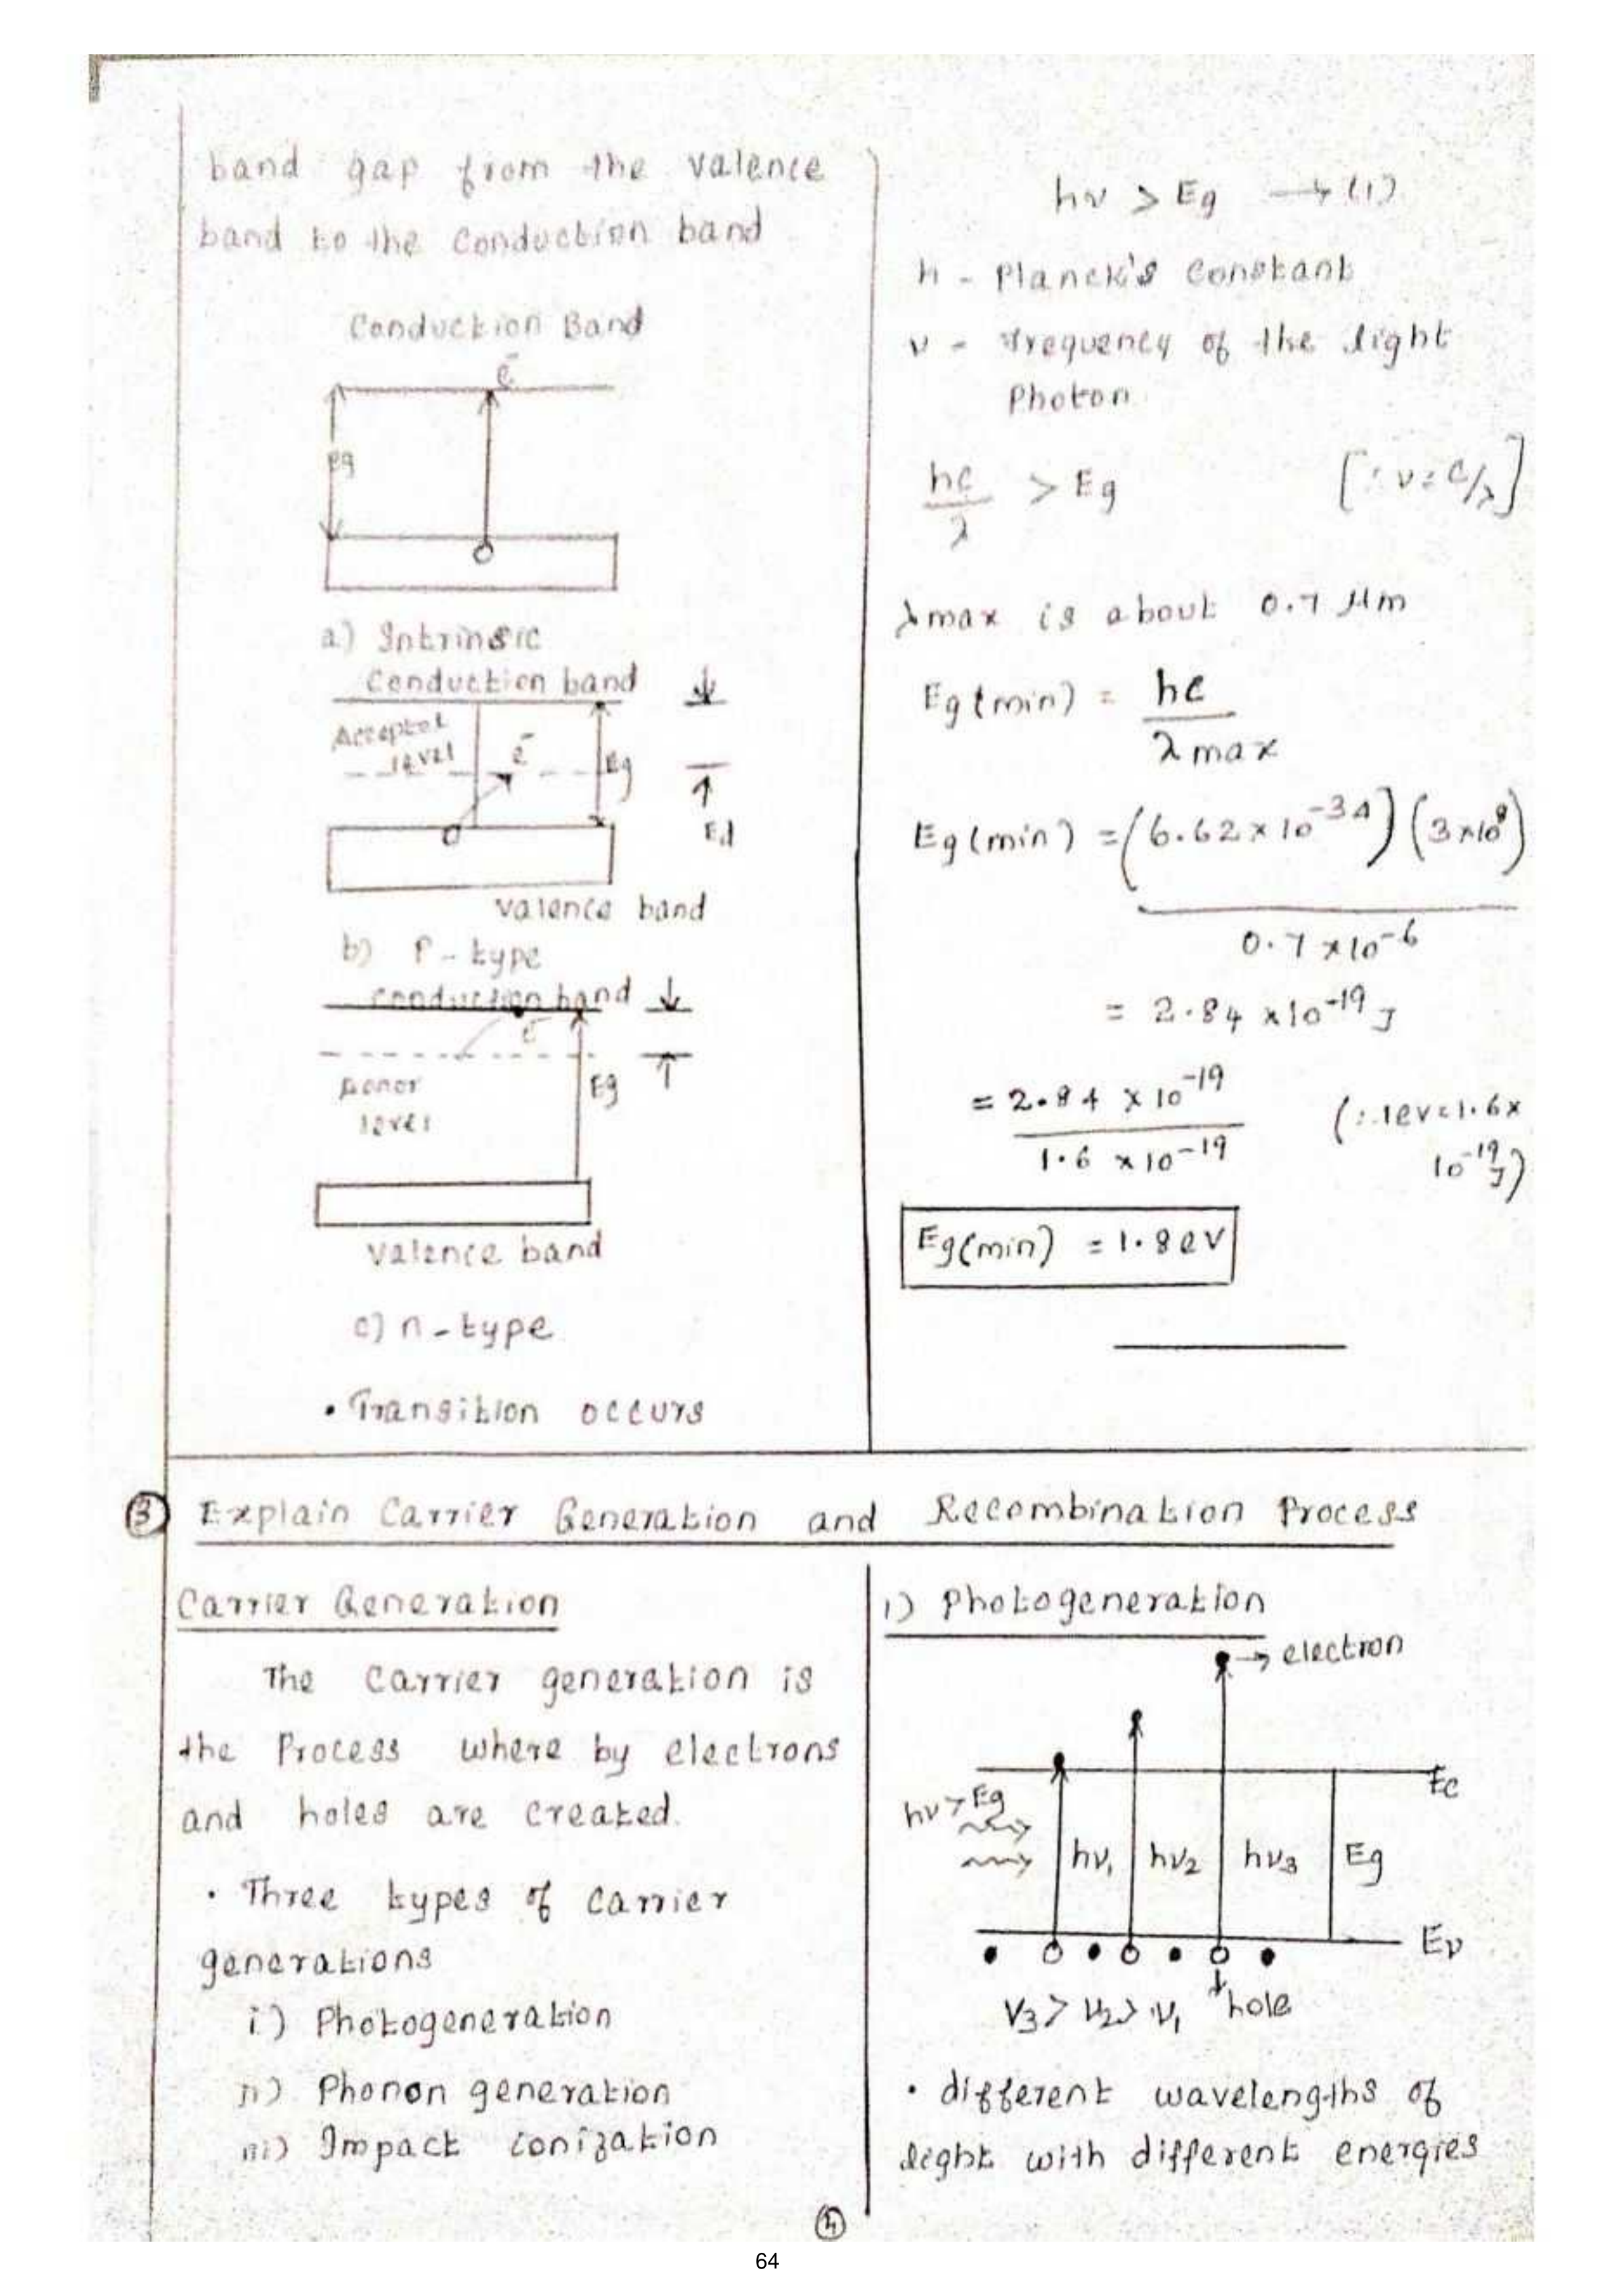 band gap from the valence
band to the conduction band
Conduction Band
e⁻
Eg
a) Intrinsic
Conduction band
Acceptor
level
e⁻
Eg
Valence band
b) P-type
Conduction band
e⁻
Donor
level
Eg
Valence band
c) n-type
• Transition occurs
hν > Eg → (1)
h - Planck's Constant
ν - frequency of the light
Photon
hc/λ > Eg [∵ ν = c/λ]
λmax is about 0.7 μm
Eg(min) = hc/λmax
Eg(min) = (6.62 × 10⁻³⁴)(3×10⁸)
0.7 × 10⁻⁶
= 2.84 × 10⁻¹⁹ J
= 2.84 × 10⁻¹⁹ (∵ 1ev = 1.6 ×
1.6 × 10⁻¹⁹ 10⁻¹⁹ J)
Eg(min) = 1.8 eV
③ Explain Carrier Generation and Recombination Process
Carrier Generation
The carrier generation is
the Process where by electrons
and holes are created.
• Three types of carrier
generations
i) Photogeneration
ii) Phonon generation
iii) Impact ionization
i) Photogeneration
→ electron
Ec
hν > Eg
hν₁ hν₂ hν₃ Eg
Eν
hole
V₃ > ν₂ > ν₁
• different wavelengths of
light with different energies
64